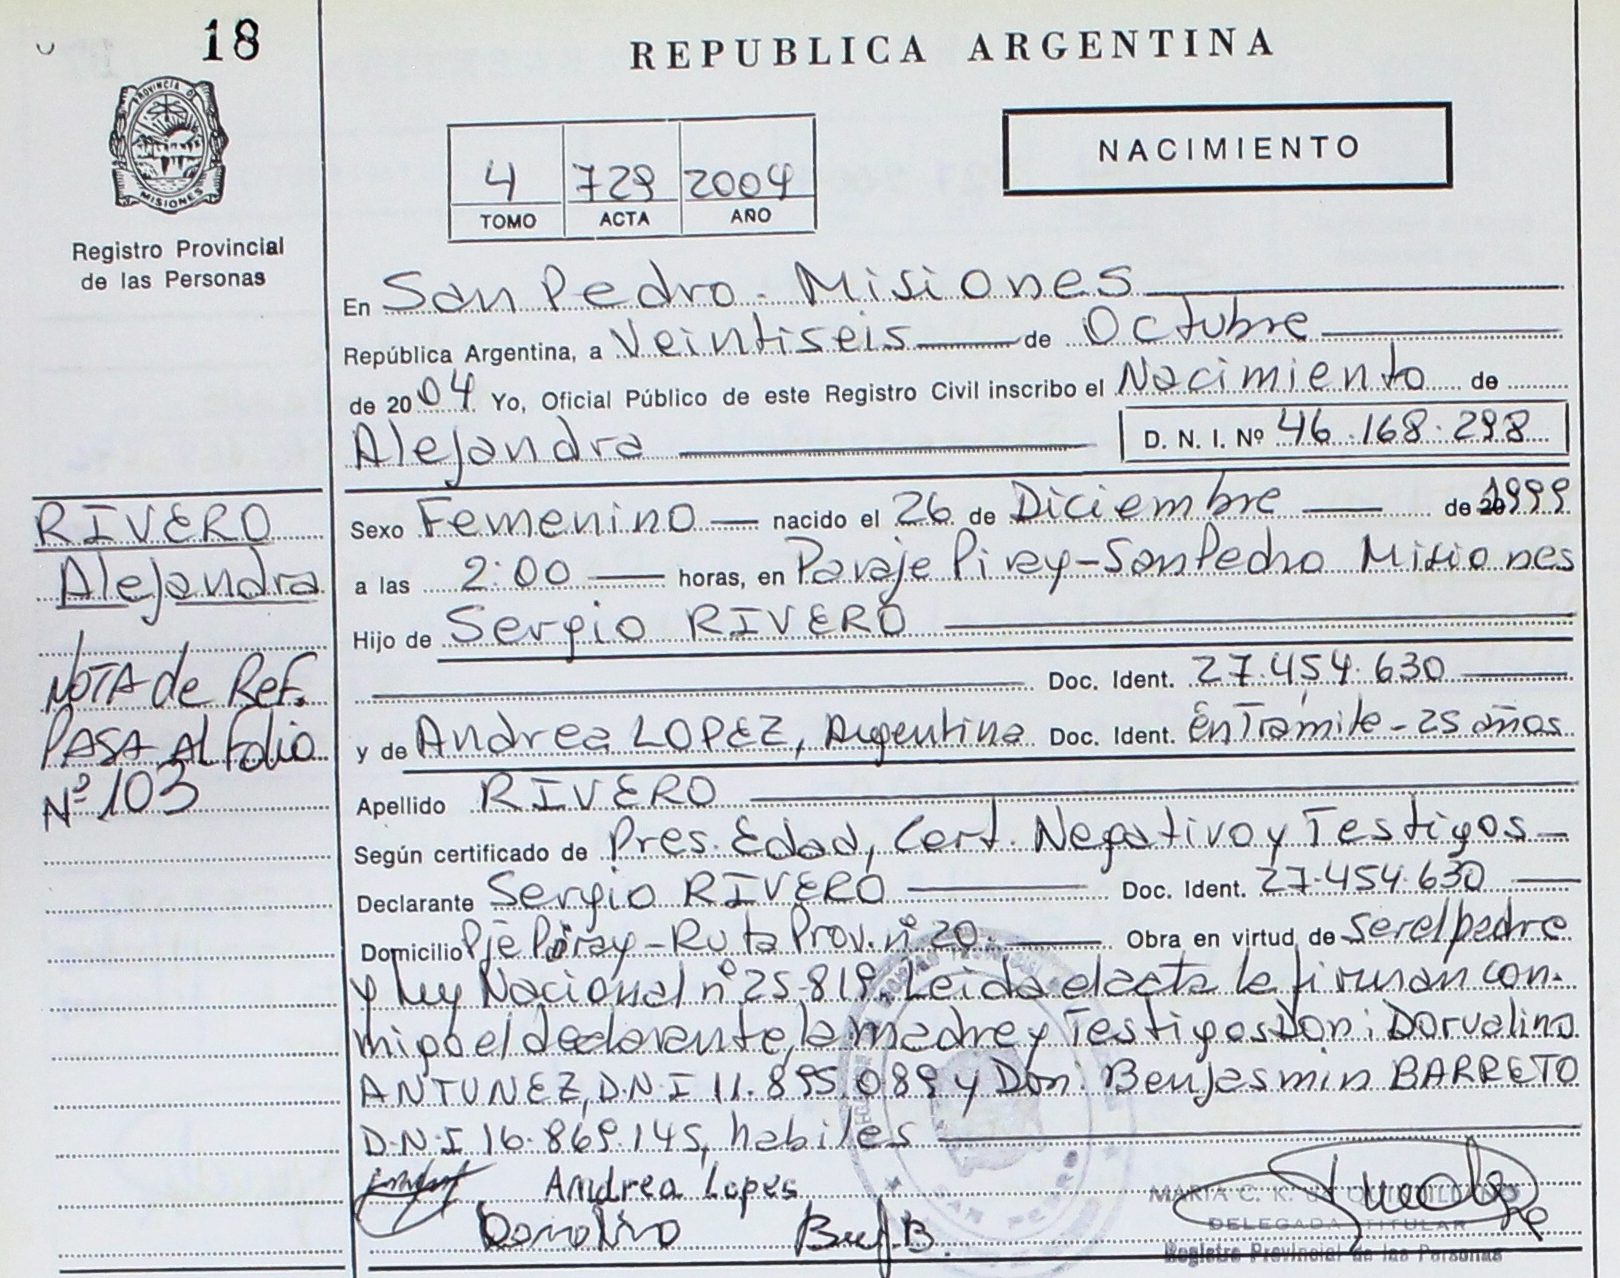 18
REPUBLICA ARGENTINA
PROVINCIA D
MISIONES
NACIMIENTO
4 729 2004
TOMO ACTA AÑO
Registro Provincial
de las Personas
En San Pedro - Misiones
República Argentina, a Veintiseis de Octubre
de 2004 Yo, Oficial Público de este Registro Civil inscribo el Nacimiento de
Alejandra D. N. I. Nº 46.168.298
RIVERO
Alejandra
NOTA de Ref.
PASA Al Folio
Nº 103
Sexo Femenino nacido el 26 de Diciembre de 1999
a las 2:00 horas, en Paraje Piray-San Pedro Misiones
Hijo de Sergio RIVERO
Doc. Ident. 27.454.630
y de Andrea LOPEZ, Argentina Doc. Ident. En Tramite - 25 años
Apellido RIVERO
Según certificado de Pres. Edad, Cert. Negativo y Testigos
Declarante Sergio RIVERO Doc. Ident. 27.454.630
Domicilio Pje Piray - Ruta Prov. nº 20. Obra en virtud de ser el padre
y ley Nacional nº 25-819 Leida el acta la firman con-
migo el declarante, la madre y Testigos Don: Dorvalino
ANTUNEZ, D.N.I 11.895.089 y Don: Benjasmin BARRETO
D.N.I 16.869.145, habiles
Andrea Lopes
B.
MARIA C. K. de QUINTILIANO
DELEGADA TITULAR
Registro Provincial de las Personas
SAN PEDRO